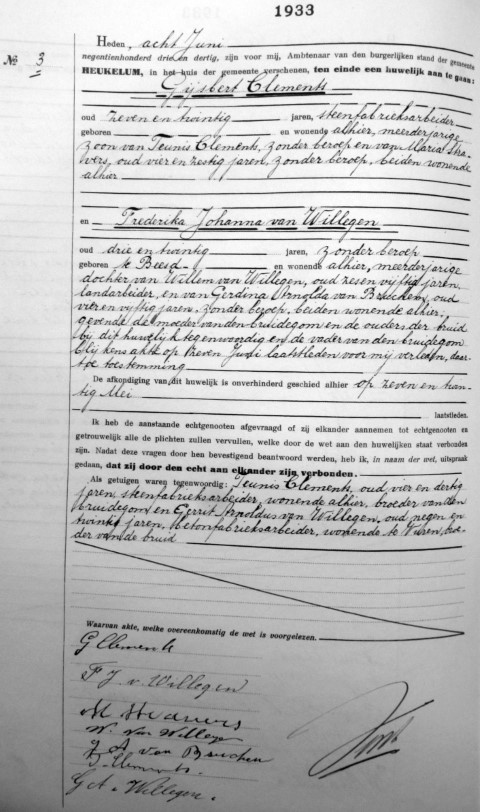 1933
Heden, acht Juni
negentienhonderd drie en dertig, zijn voor mij, Ambtenaar van den burgerlijken stand der gemeente
№ 3 HEUKELUM, in het huis der gemeente verschenen, ten einde een huwelijk aan te gaan:
Gijsbert Clements
oud zeven en twintig jaren, steenfabrieksarbeider
geboren en wonende alhier, meerderjarige
zoon van Teunis Clements, zonder beroep en van Maria Stra-
vers, oud vier en zestig jaren, zonder beroep, beiden wonende
alhier
en Frederika Johanna van Willegen
oud drie en twintig jaren, zonder beroep
geboren te Beesd en wonende alhier, meerderjarige
dochter van Willem van Willegen, oud zes en vijftig jaren,
landarbeider, en van Gerdina Arnolda van Beuchem, oud
vier en vijftig jaren, zonder beroep, beiden wonende alhier;
gevende de moeder van den bruidegom en de ouders der bruid
bij dit huwelijk tegenwoordig en de vader van den bruidegom
blijkens akte op zeven Juni laatstleden voor mij verleden, daar-
toe toestemming
De afkondiging van dit huwelijk is onverhinderd geschied alhier op zeven en twin-
tig Mei
laatstleden.
Ik heb de aanstaande echtgenooten afgevraagd of zij elkander aannemen tot echtgenooten en
getrouwelijk alle de plichten zullen vervullen, welke door de wet aan den huwelijken staat verbonden
zijn. Nadat deze vragen door hen bevestigend beantwoord werden, heb ik, in naam der wet, uitspraak
gedaan, dat zij door den echt aan elkander zijn verbonden.
Als getuigen waren tegenwoordig: Teunis Clements, oud vier en dertig
jaren, steenfabrieksarbeider, wonende alhier, broeder van den
bruidegom en Gerrit Arnoldus van Willegen, oud negen en
twintig jaren, betonfabrieksarbeider, wonende te Vuren, broe-
der van de bruid
Waarvan akte, welke overeenkomstig de wet is voorgelezen.
G Clements
F J v Willegen
M Stravers
W. van Willegen
G A van Beuchem
T. Clements.
G A v Willegen.